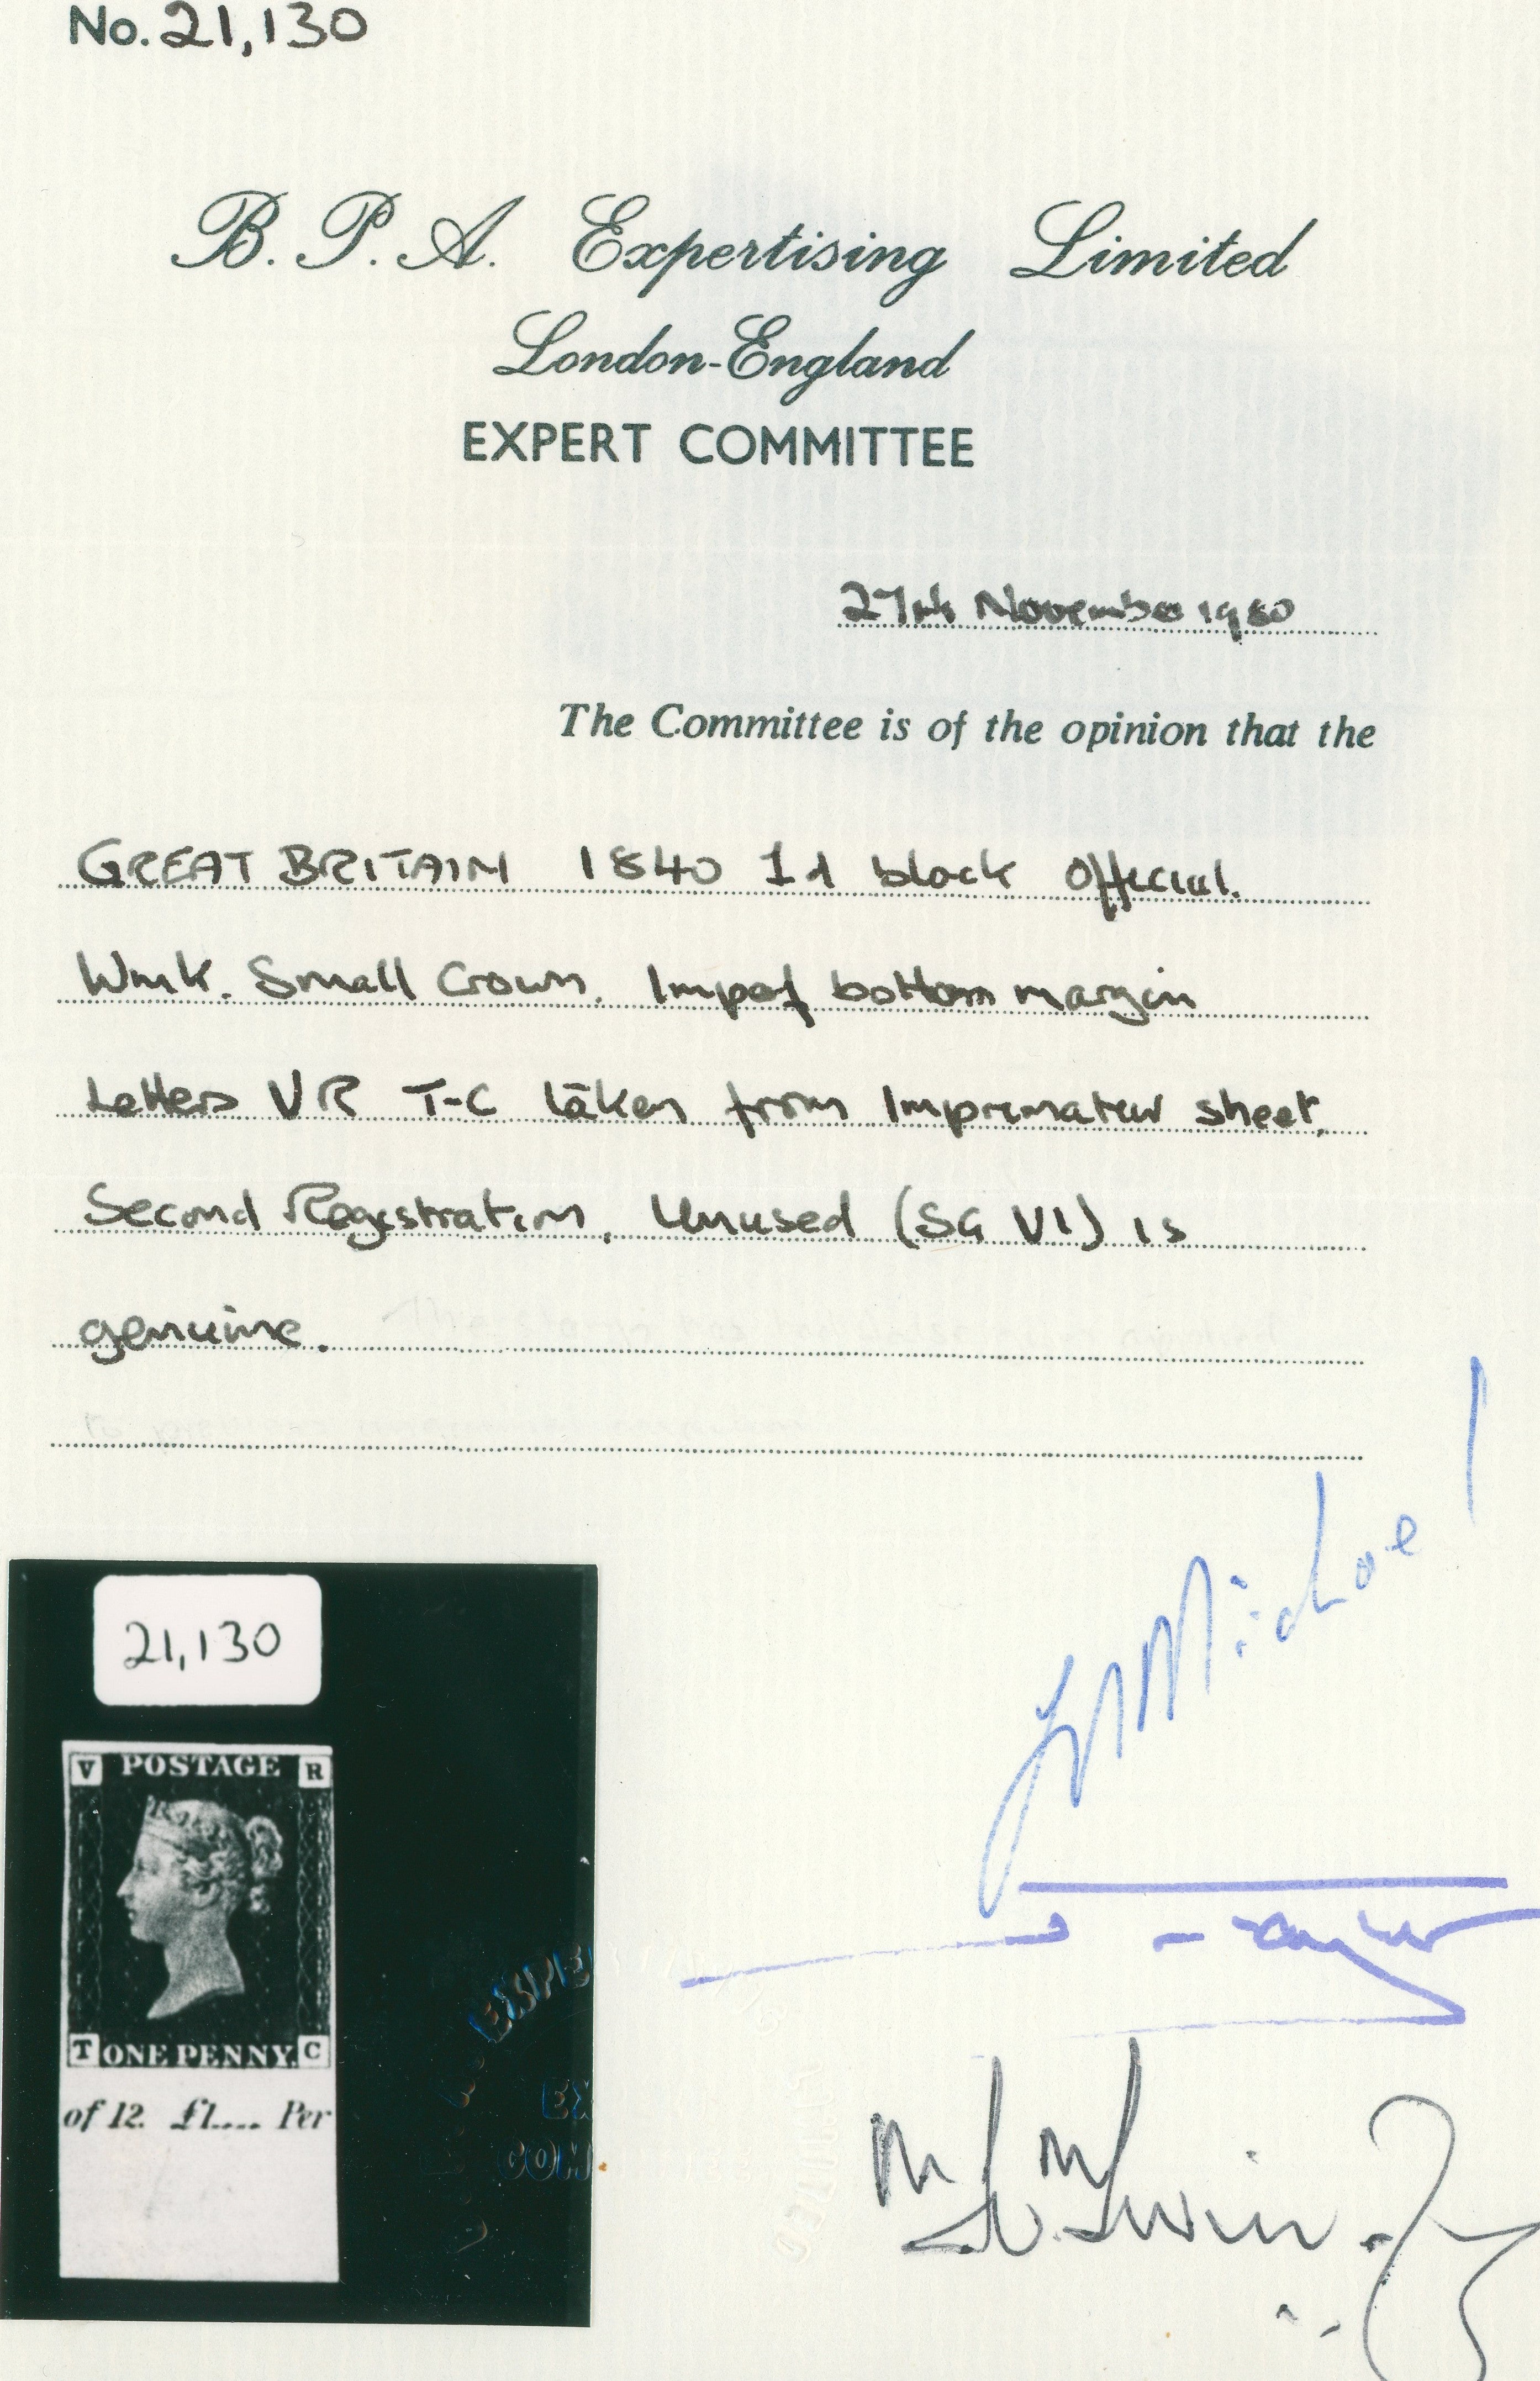 No. 21,130
B. P. A. Expertising Limited
London-England
EXPERT COMMITTEE
27th November 1980
The Committee is of the opinion that the
GREAT BRITAIN 1840 1d black Official.
Wmk. Small Crown. Imperf bottom margin
Letters VR T-C taken from Imprimatur sheet,
Second Registration, Unused (SG V1) is
genuine.
21,130
V POSTAGE R
T ONE PENNY. C
of 12. £1.... Per